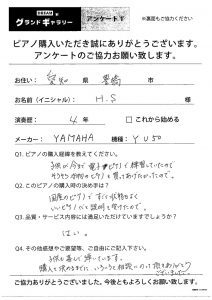 グランドギャラリー アンケート① ※裏面もご協力ください
ピアノ購入いただき誠にありがとうございます。
アンケートのご協力お願い致します。
お住い： 愛知 県 豊橋 市
お名前(イニシャル)： H.S 様
演奏歴： 4 年 □これから始める
メーカー： YAMAHA 機種： YU50
Q1. ピアノの購入経緯を教えてください。
子供が今まで電子ピアノで練習していたので
Q2. このピアノの購入時の決め手は？
国産のピアノで すごく状態もよく
いいピアノだと説明を受けたので。
Q3. 品質・サービス内容には満足いただけていますでしょうか？
はい。
Q4. その他感想やご要望等、ご自由にご記入下さい。
子供も喜んで弾いてます。
購入を決めるまでに いろいろと相談にのって頂きありがとう
ございました。
ご協力ありがとうございました。今後ともよろしくお願い致します。